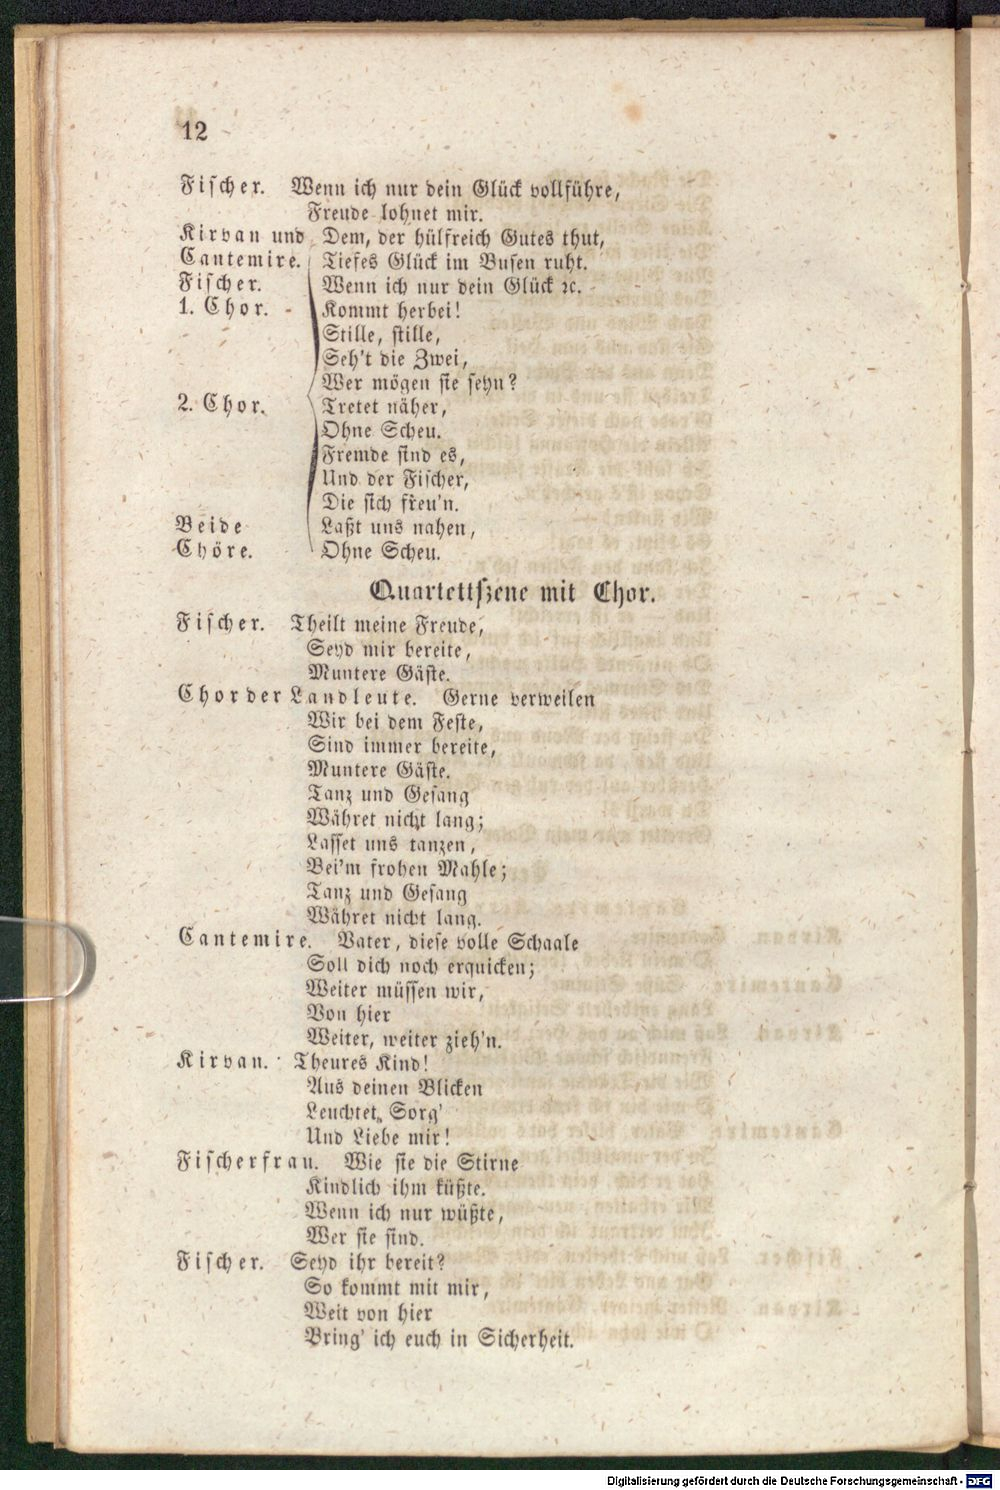 12
Fischer. Wenn ich nur dein Glück vollführe,
Freude lohnet mir.
Kirvan und Dem, der hülfreich Gutes thut,
Cantemire. Tiefes Glück im Busen ruht.
Fischer. Wenn ich nur dein Glück ꝛc.
1. Chor. Kommt herbei!
Stille, stille,
Seh't die Zwei,
Wer mögen sie seyn?
2. Chor. Tretet näher,
Ohne Scheu.
Fremde sind es,
Und der Fischer,
Die sich freu'n.
Beide Laßt uns nahen,
Chöre. Ohne Scheu.
Quartettszene mit Chor.
Fischer. Theilt meine Freude,
Seyd mir bereite,
Muntere Gäste.
Chor der Landleute. Gerne verweilen
Wir bei dem Feste,
Sind immer bereite,
Muntere Gäste.
Tanz und Gesang
Währet nicht lang;
Lasset uns tanzen,
Bei'm frohen Mahle;
Tanz und Gesang
Währet nicht lang.
Cantemire. Vater, diese volle Schaale
Soll dich noch erquicken;
Weiter müssen wir,
Von hier
Weiter, weiter zieh'n.
Kirvan. Theures Kind!
Aus deinen Blicken
Leuchtet Sorg'
Und Liebe mir!
Fischerfrau. Wie sie die Stirne
Kindlich ihm küßte.
Wenn ich nur wüßte,
Wer sie sind.
Fischer. Seyd ihr bereit?
So kommt mit mir,
Weit von hier
Bring' ich euch in Sicherheit.
Digitalisierung gefördert durch die Deutsche Forschungsgemeinschaft - DFG